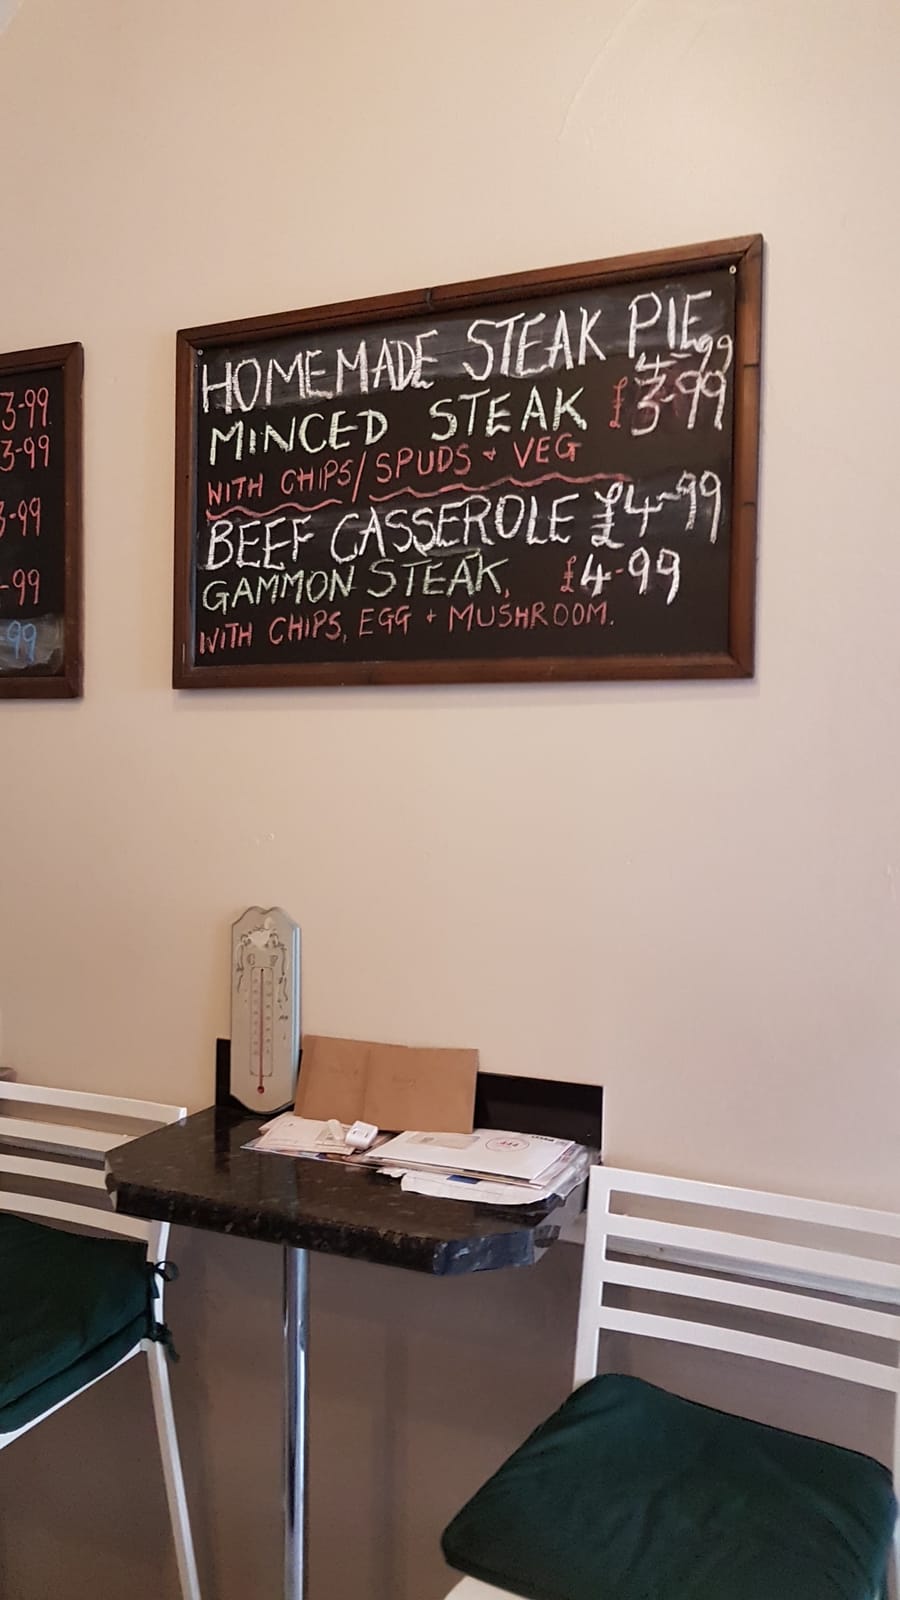 3-99
3-99
3-99
-99
-99
HOMEMADE STEAK PIE
4-99
MINCED STEAK £3-99
WITH CHIPS/SPUDS + VEG
BEEF CASSEROLE £4-99
GAMMON STEAK. £4-99
WITH CHIPS, EGG + MUSHROOM.